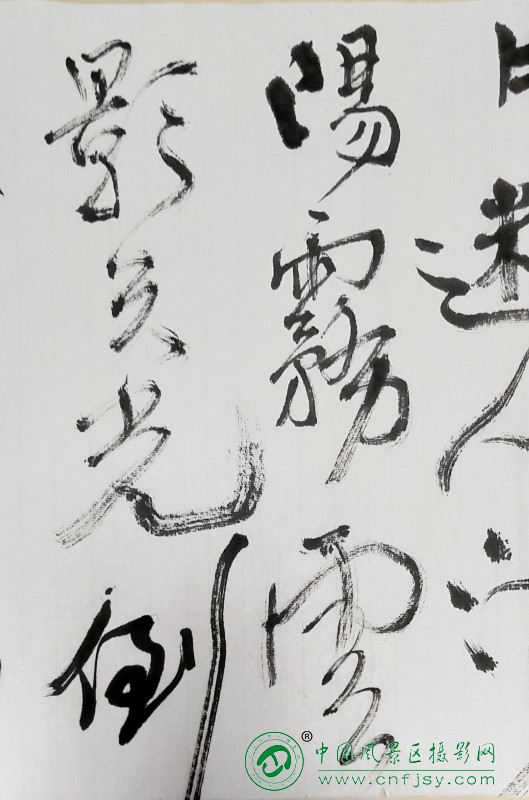 迷人
陽霧雲
影天光倒
中国风景区摄影网
www.cnfjsy.com
®